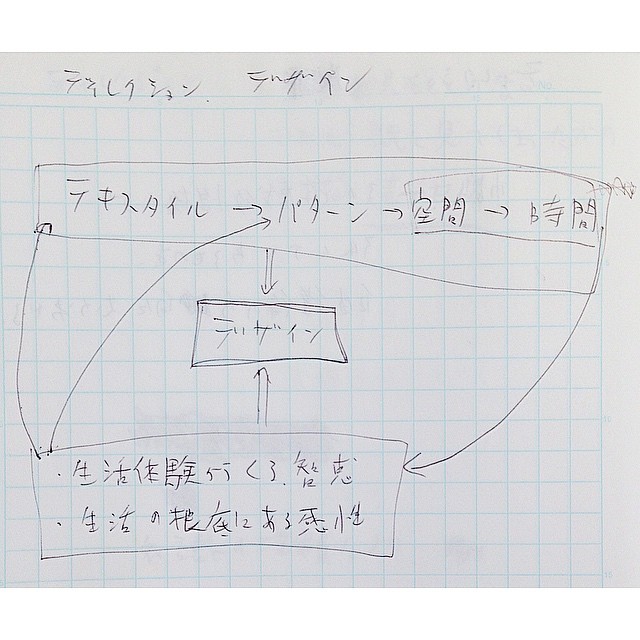 ディレクション デザイン
テキスタイル → パターン → 空間 → 時間
デザイン
・生活体験からくる智恵
・生活の根底にある感性